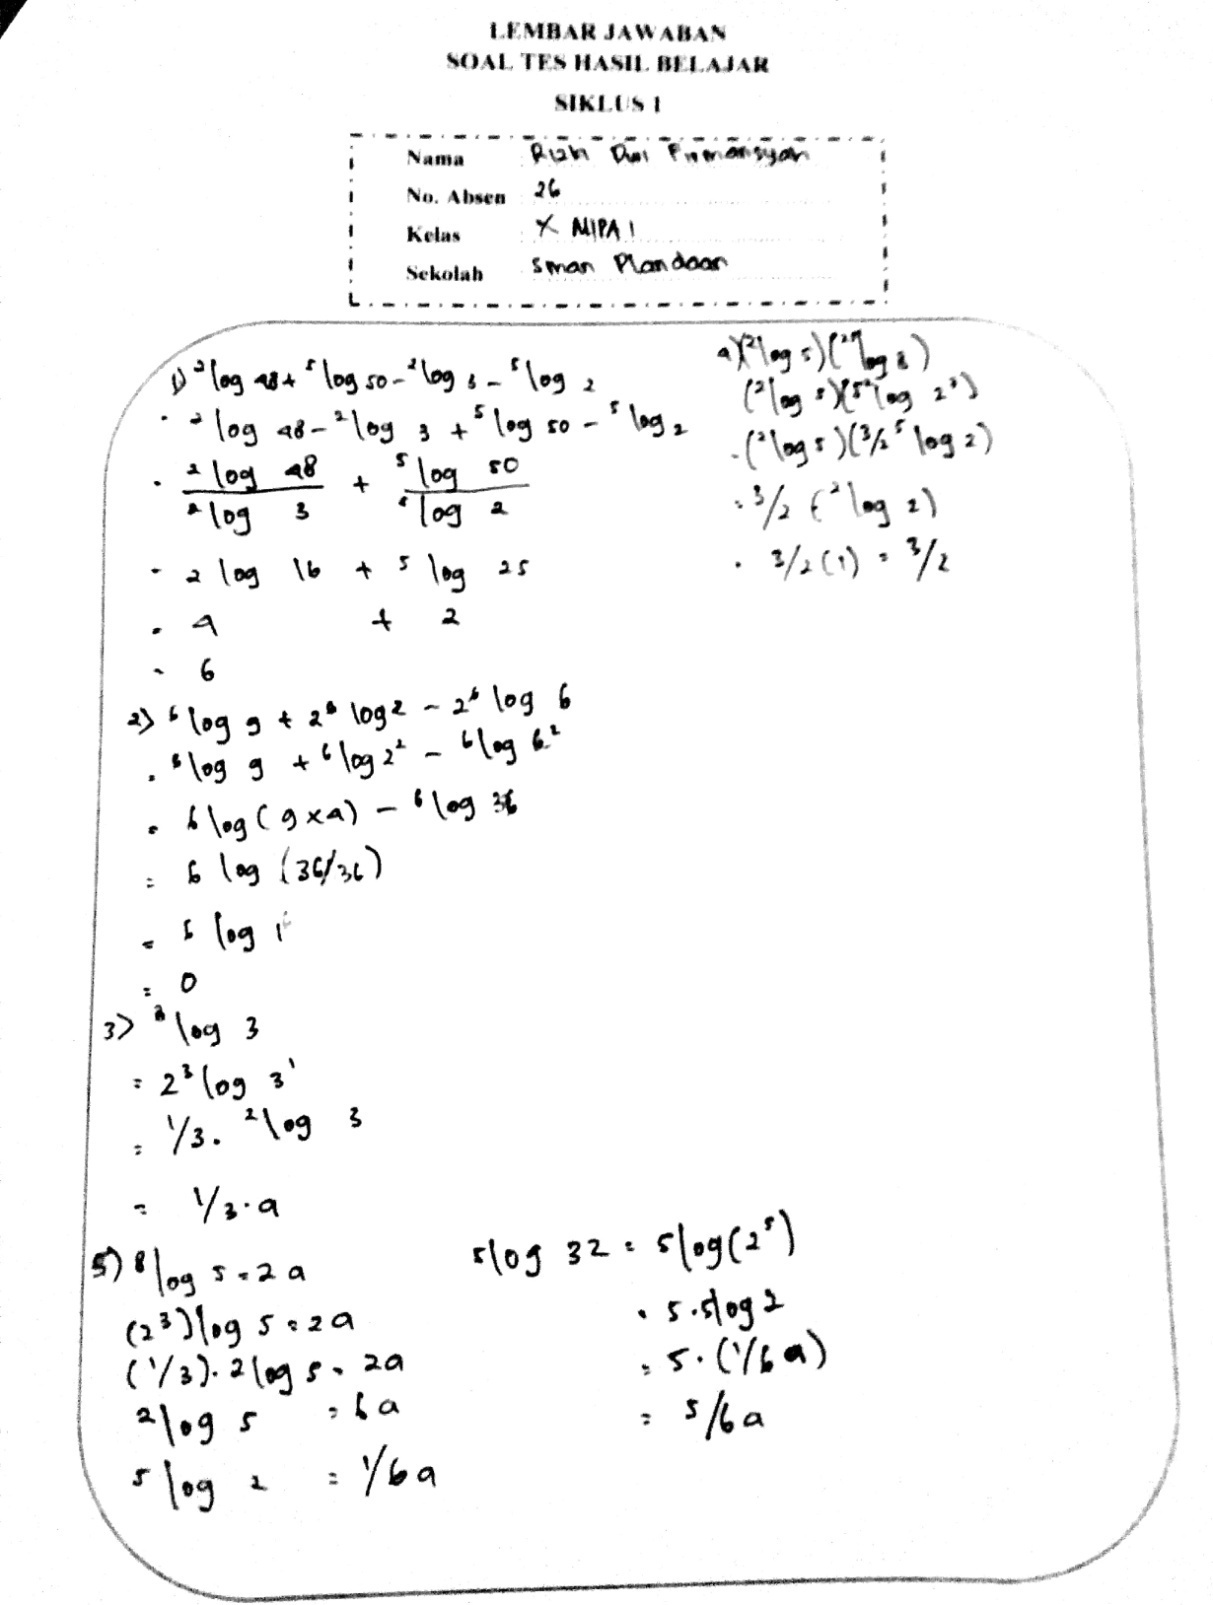 LEMBAR JAWABAN
SOAL TES HASIL BELAJAR
SIKLUS I
Nama Rizki Dwi Firmansyah
No. Absen 26
Kelas X MIPA 1
Sekolah Sman Plandaan
1) ²log 48 + ⁵log 50 - ²log 3 - ⁵log 2
= ²log 48 - ²log 3 + ⁵log 50 - ⁵log 2
= ²log 48 / ²log 3 + ⁵log 50 / ⁵log 2
= 2 log 16 + ⁵log 25
= 4 + 2
= 6
2) ⁶log 9 + 2⁶log 2 - 2⁶log 6
= ⁶log 9 + ⁶log 2² - ⁶log 6²
= 6 log (9x4) - ⁶log 36
= 6 log (36/36)
= 6 log 1
= 0
3) ⁸log 3
= 2³ log 3¹
= 1/3 . ²log 3
= 1/3 . a
4) (²log 5)(²⁵log 8)
(²log 5)(5² log 2³)
= (²log 5)(3/2 ⁵log 2)
= 3/2 (²log 2)
= 3/2 (1) = 3/2
5) ⁸log 5 = 2a
(2³) log 5 = 2a
(1/3) . 2 log 5 = 2a
²log 5 = 6a
⁵log 2 = 1/6a
5log 32 = 5log(2⁵)
= 5.5log 2
= 5.(1/6a)
= 5/6a